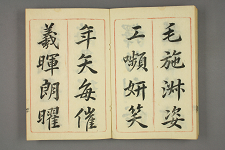 毛施淑姿
工嚬妍笑
年矢每催
羲暉朗曜